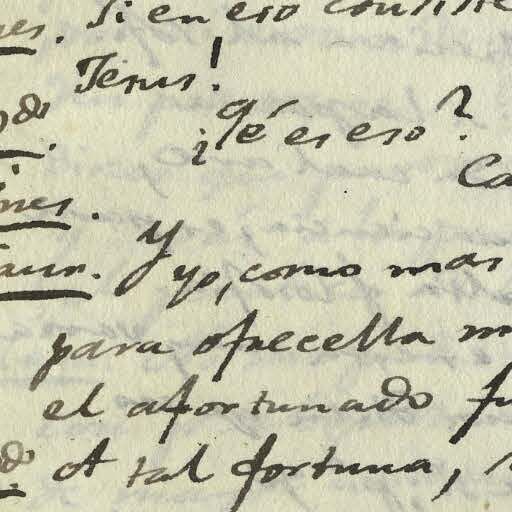 Si en eso consiste
Jesus!
¿Qé es eso?
Ca
Ynes.
Y
yo, como mas
para ofrecella m
el afortunado fu
tal fortuna,